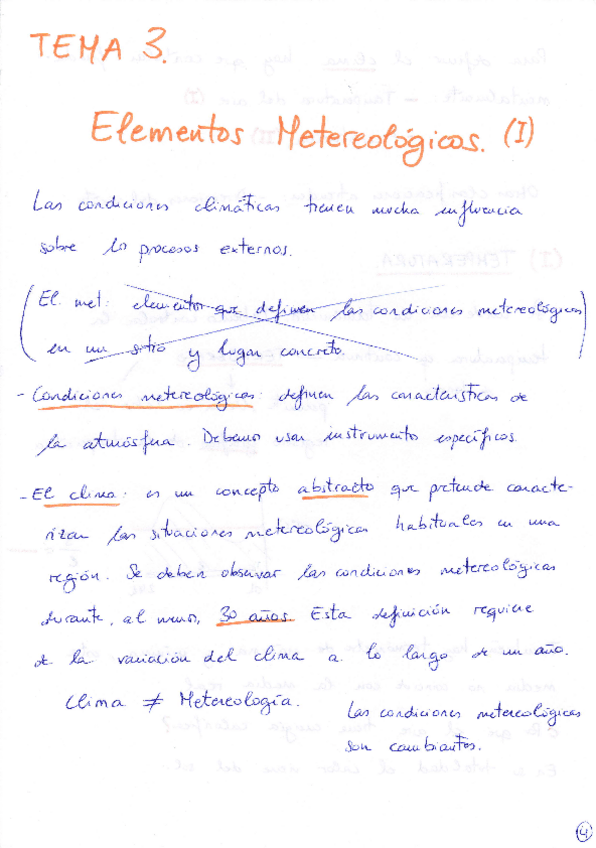 TEMA 3.
Elementos Metereológicos. (I)
Las condiciones climáticas tienen mucha influencia
sobre lo procesos externos.
(El. met: elementos que definen las condiciones metereológicas)
en un sitio y lugar concreto.
- Condiciones metereológicas: definen las características de
la atmósfera. Debemos usar instrumentos específicos.
- El clima: es un concepto abstracto que pretende caracte-
rizar las situaciones metereológicas habituales en una
región. Se deben observar las condiciones metereológicas
durante, al menos, 30 años. Esta definición requiere
de la variación del clima a lo largo de un año.
Clima ≠ Metereología.
Las condiciones metereológicas
son cambiantes.
4